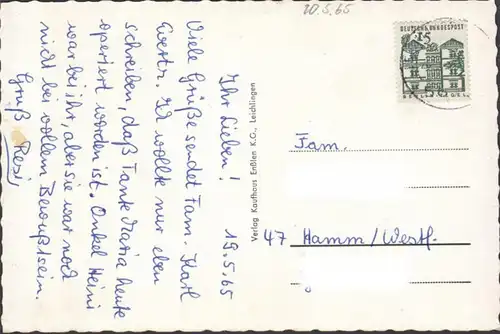 20.5.65
15
DEUTSCHE BUNDESPOST
Ihr Lieben! 19.5.65
Viele Grüße sendet Fam. Karl
Ewestr. Ich wollte nur eben
schreiben, daß Tante Maria heute
operiert worden ist. Onkel Heini
war bei ihr, aber sie war noch
nicht bei vollem Bewußtsein.
Gruß Resi,
Verlag Kaufhaus Enßlen K.G., Leichlingen
Fam.
47 Hamm/Westf.